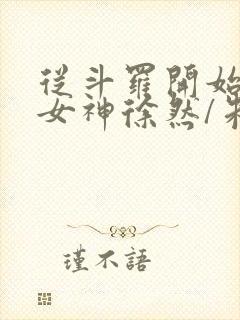 從斗羅開始
女神徐然/
瑾不語